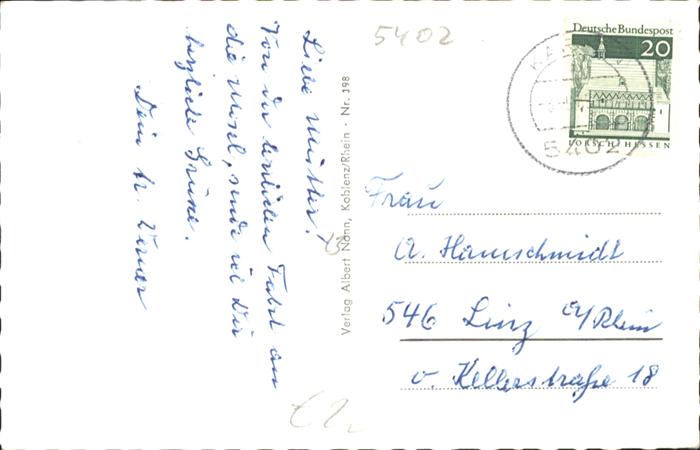 Liebe Mutter!
Von der herrlichen Fahrt an
die Mosel, sende ich Dir
herzliche Grüsse.
Dein Werner
Verlag Albert Nonn, Koblenz/Rhein - Nr. 198
5402
Deutsche Bundespost
20
LORSCH HESSEN
5402
Frau
A. Hamschmidt
546 Linz a/Rhein
v. Kellerstraße 18